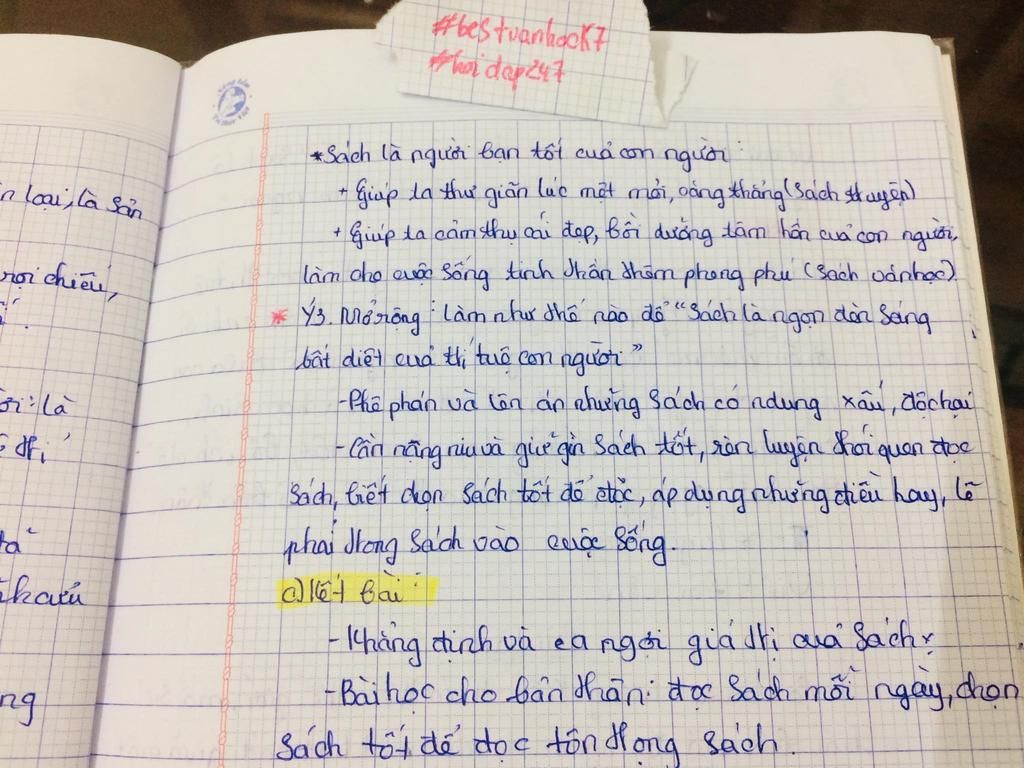 #bestvanhocK7
#hoidap247
n loại, là sản
rọi chiếu,
ời: là
trí
tả
ng
* Sách là người bạn tốt của con người:
+ Giúp ta thư giãn lúc mệt mỏi, căng thẳng (sách truyện)
+ Giúp ta cảm thụ cái đẹp, bồi dưỡng tâm hồn của con người,
làm cho cuộc sống tinh thần thêm phong phú (sách văn học).
* Ý3. Mở rộng: làm như thế nào để "Sách là ngọn đèn sáng
bất diệt của trí tuệ con người"
- Phê phán và lên án những sách có ndung xấu, độc hại
- Cần nâng niu và giữ gìn sách tốt, rèn luyện thói quen đọc
sách, biết chọn sách tốt để đọc, áp dụng những điều hay, lẽ
phải trong sách vào cuộc sống.
c) Kết bài:
- Khẳng định và ca ngợi giá trị của sách.
- Bài học cho bản thân: đọc sách mỗi ngày, chọn
sách tốt để đọc tôn trọng sách.